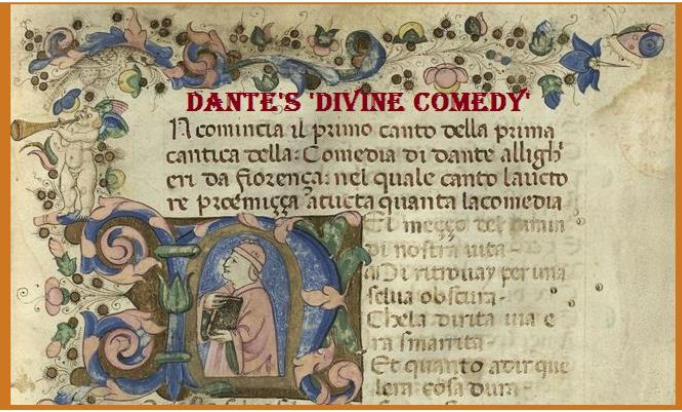 DANTE'S 'DIVINE COMEDY'
N comincia il primo canto della prima
cantica della: Comedia di dante alligh'
eri da fiorença: nel quale canto laucto
re proemiçça atucta quanta lacomedia
El meçço del
di nostra uita
Mi ritrouay per una
selua obscura
Chela dirita uia e
ra smarrita
Et quanto adir que
lera cosa dura